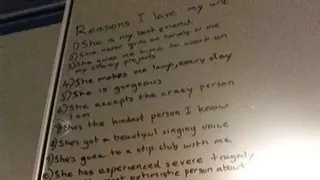 Reasons I love my wife
1) She is my best friend
2) She never gets on herself or me
3) She gives me time to work on
my crazy projects
4) She makes me laugh, every day
5) She is gorgeous
6) She accepts the crazy person
I am
7) She's the kindest person I know
8) She's got a beautiful singing voice
9) She's gone to a strip club with me
She has experienced severe tragedy
optimistic person about